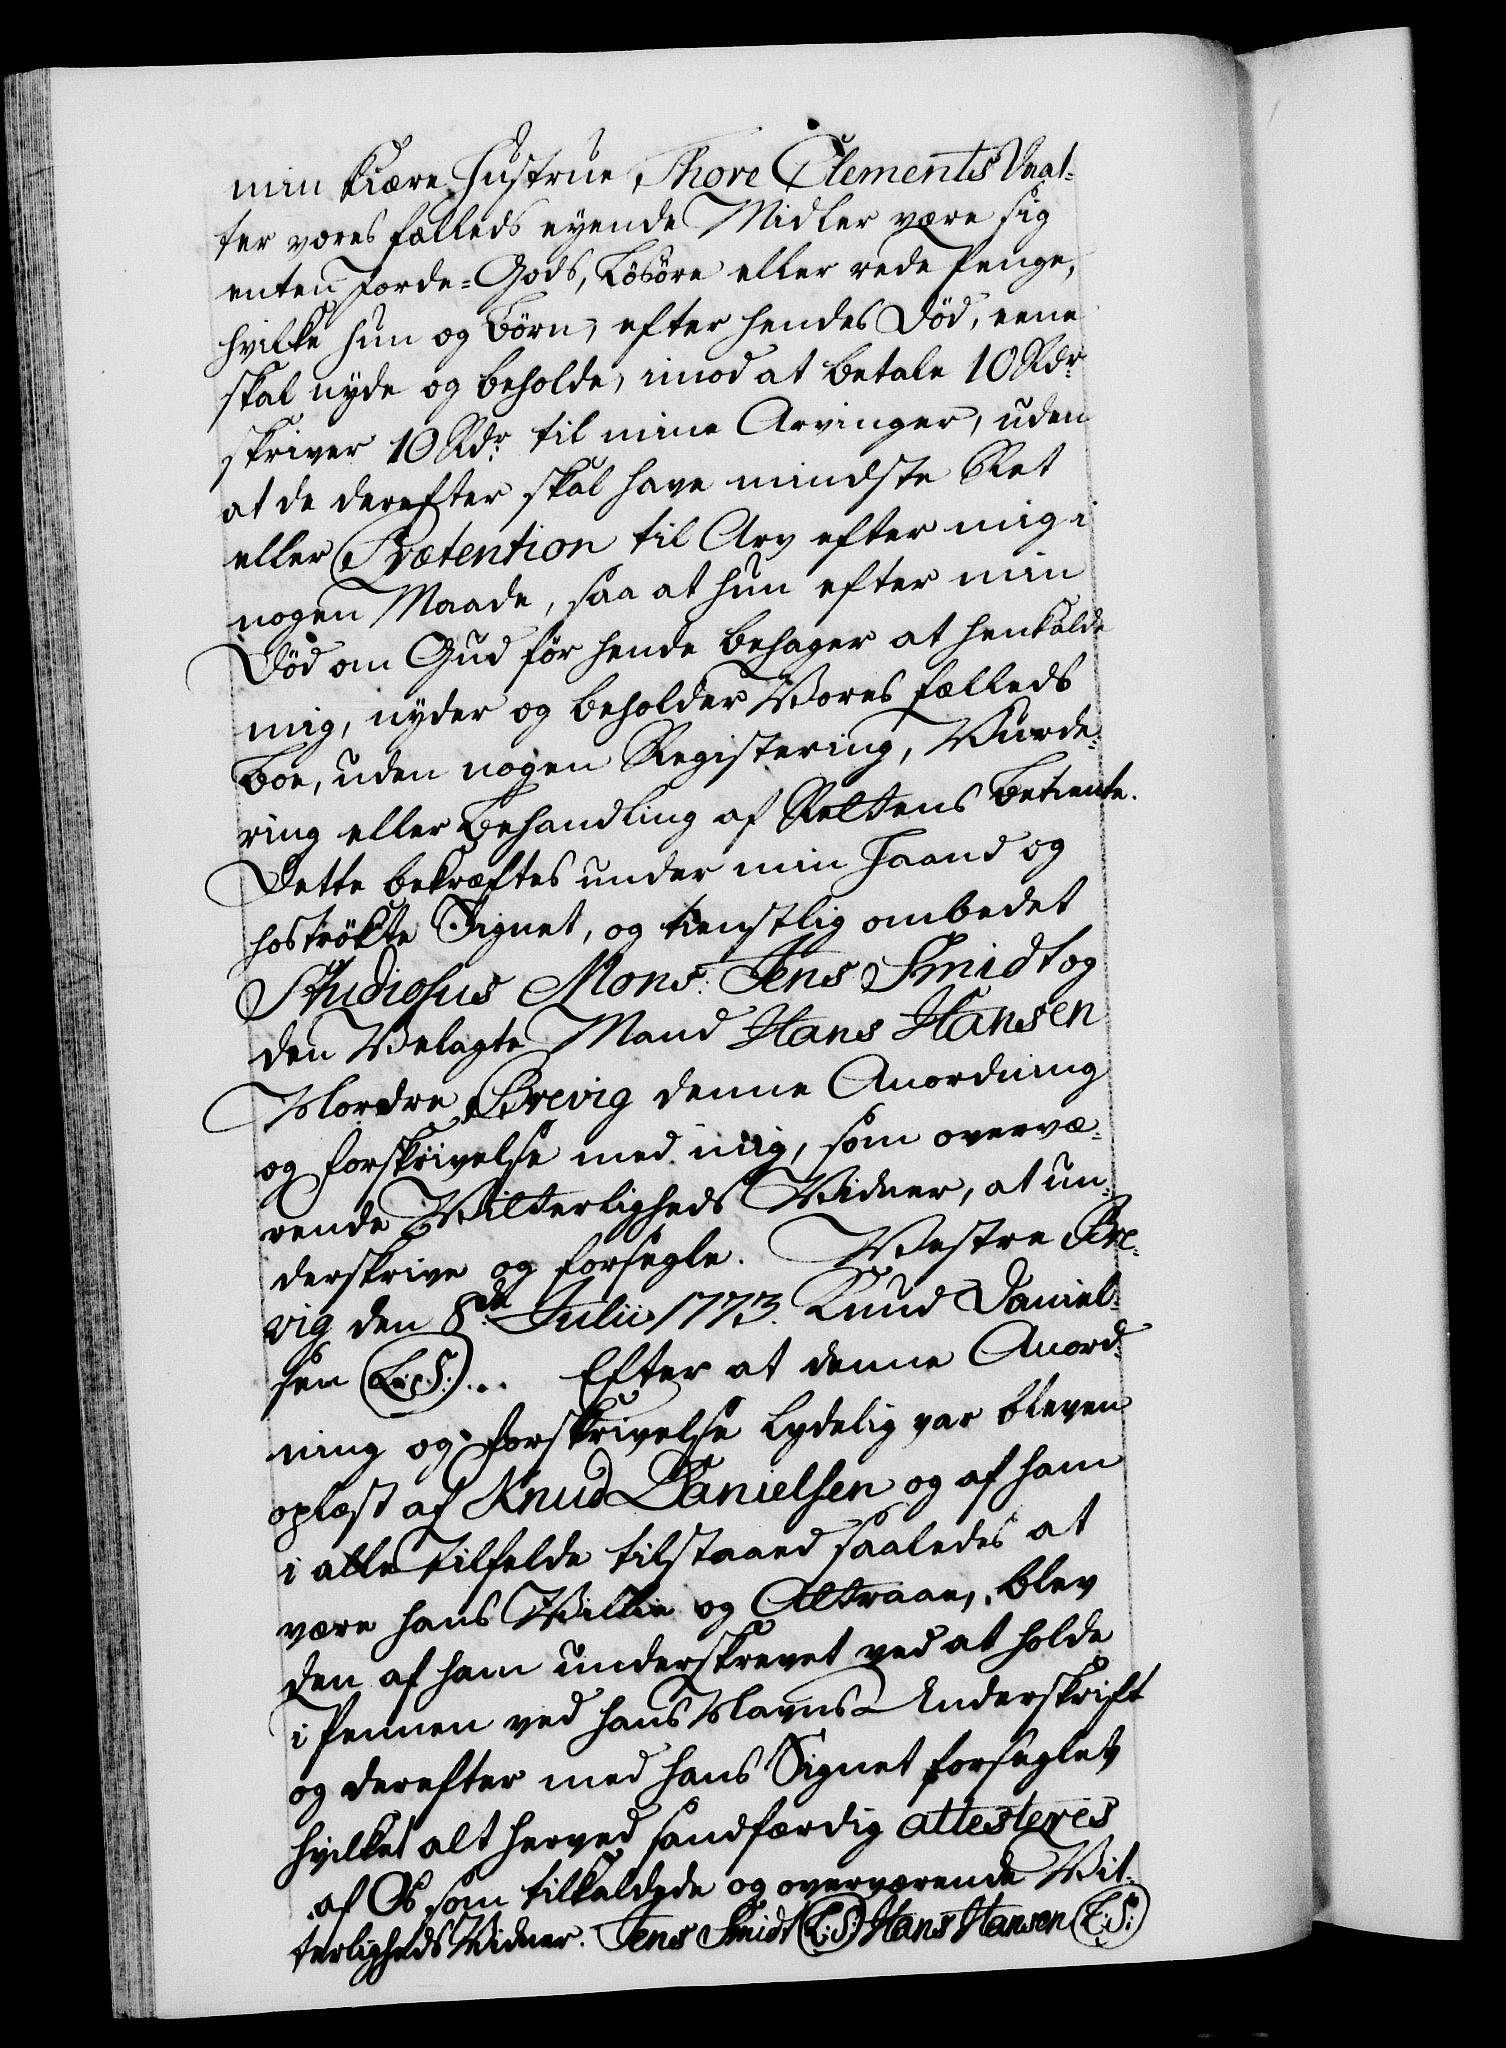 min kiære Hustrue Thore Clements Daat-
ter vores fælleds eyende Midler være sig
enten Jorde-Gods, Løsøre eller rede Penge,
hvilke hun og Børn, efter hendes Død, eene
skal nyde og beholde, imod at betale 10 Rdr
skriver 10 Rdr til mine Arvinger, uden
at de derefter skal have mindste Ret
eller Prætention til Arv efter mig i
nogen Maade, saa at hun efter min
Død om Gud før hende behager at henkalde
mig, nyder og beholder Vores fælleds
Boe, uden nogen Registering, Vurde-
ring eller Behandling af Rettens Betiente.
Dette bekræftes under min Haand og
hoströkte Signet, og tienstlig ombedet
Studiosus Mons: Jens Smidt og
den Velagte Mand Hans Hansen
Nordre Brevig denne Anordning
og forskrivelse med mig, som overvæ-
rende Vitterligheds Vidner, at un-
derskrive og forsegle. Vestre Bre-
vig den 8de Julii 1773. Knud Daniel-
sen (L:S:)... Efter at denne Anord-
ning og forskrivelse lydelig var bleven
oplæst af Knud Danielsen og af ham
i alle tilfelde tilstaaed saaledes at
være hans Villie og Attraae, blev
den af ham underskrevet ved at holde
i Pennen ved hans Navns Underskrift
og derefter med hans Signet forseglet
hvilket alt herved sandfærdig attesteres
af Os som tilkaldede og overværende Vit-
terligheds Vidner. Jens Smidt (L:S:) Hans Hansen (L:S:)